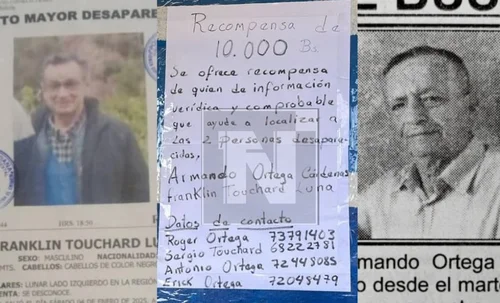 TO MAYOR DESAPARE
ZOES: 18:50
RANKLIN TOUCHARD LU
SEXO: MASCULINO NACIONALIDA
MTS. CABELLOS: CABELLOS DE COLOR NEGR
LARES: LUNAR LADO IZQUIERDO EN LA REGIÓN
SE DESCONOCE.
Recompensa de
10.000 Bs.
Se ofrece recompensa
de quien de información
verídica y comprobable
que ayude a localizar a
las 2 personas desapare
cidas,
Armando Ortega Cárdenas
Franklin Touchard Luna
Datos de contacto
Roger Ortega 73791403
Sergio Touchard 68222781
Antonio Ortega 72448085
Erick Ortega 72048479
N
mando Ortega
o desde el mart